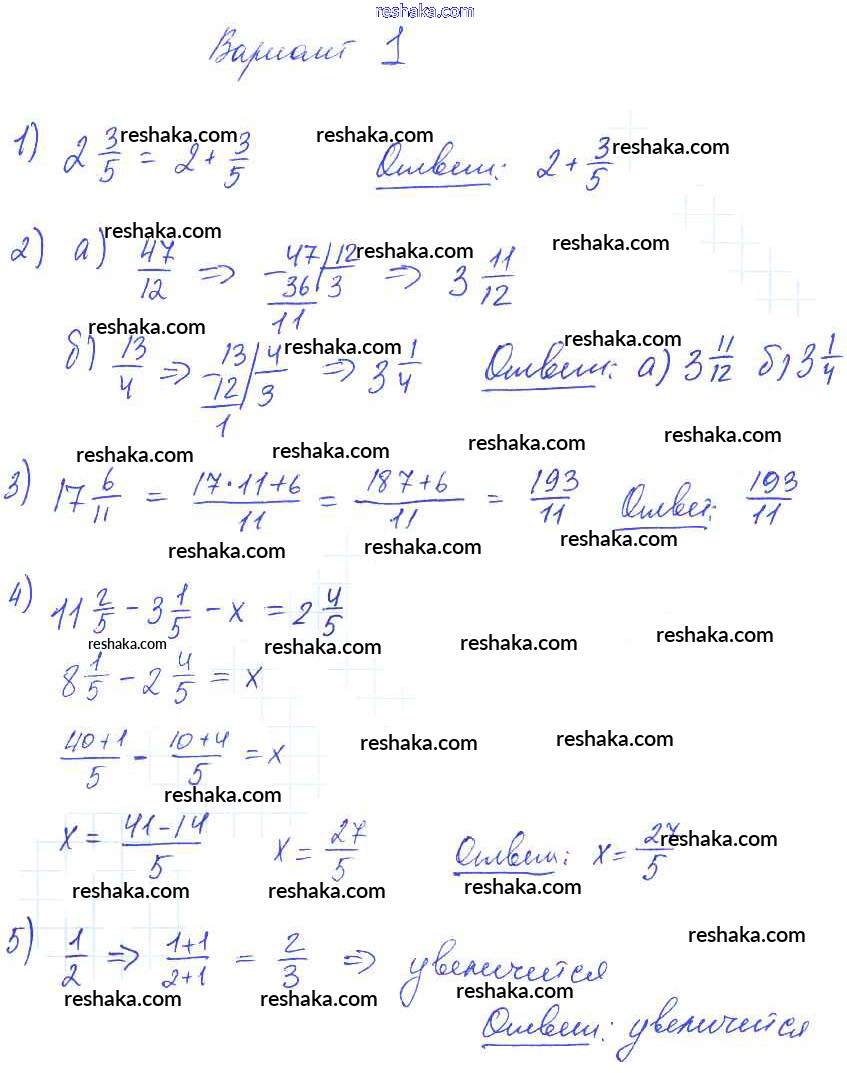 reshaka.com
Вариант 1
1) 2 3/5 = 2 + 3/5 Ответ: 2 + 3/5
reshaka.com reshaka.com reshaka.com
2) а) 47/12 => 47 | 12 - 36 | 3 11 => 3 11/12
reshaka.com reshaka.com reshaka.com
б) 13/4 => 13 | 4 - 12 | 3 1 => 3 1/4 Ответ: а) 3 11/12 б) 3 1/4
reshaka.com reshaka.com reshaka.com
reshaka.com reshaka.com reshaka.com reshaka.com
3) 17 6/11 = 17·11+6/11 = 187+6/11 = 193/11 Ответ: 193/11
reshaka.com reshaka.com reshaka.com
4) 11 2/5 - 3 1/5 - x = 2 4/5
reshaka.com reshaka.com reshaka.com reshaka.com
8 1/5 - 2 4/5 = x
40+1/5 - 10+4/5 = x
reshaka.com reshaka.com reshaka.com
x = 41-14/5 x = 27/5 Ответ: x = 27/5
reshaka.com reshaka.com reshaka.com reshaka.com
5) 1/2 => 1+1/2+1 = 2/3 => увеличится
reshaka.com reshaka.com reshaka.com reshaka.com
Ответ: увеличится